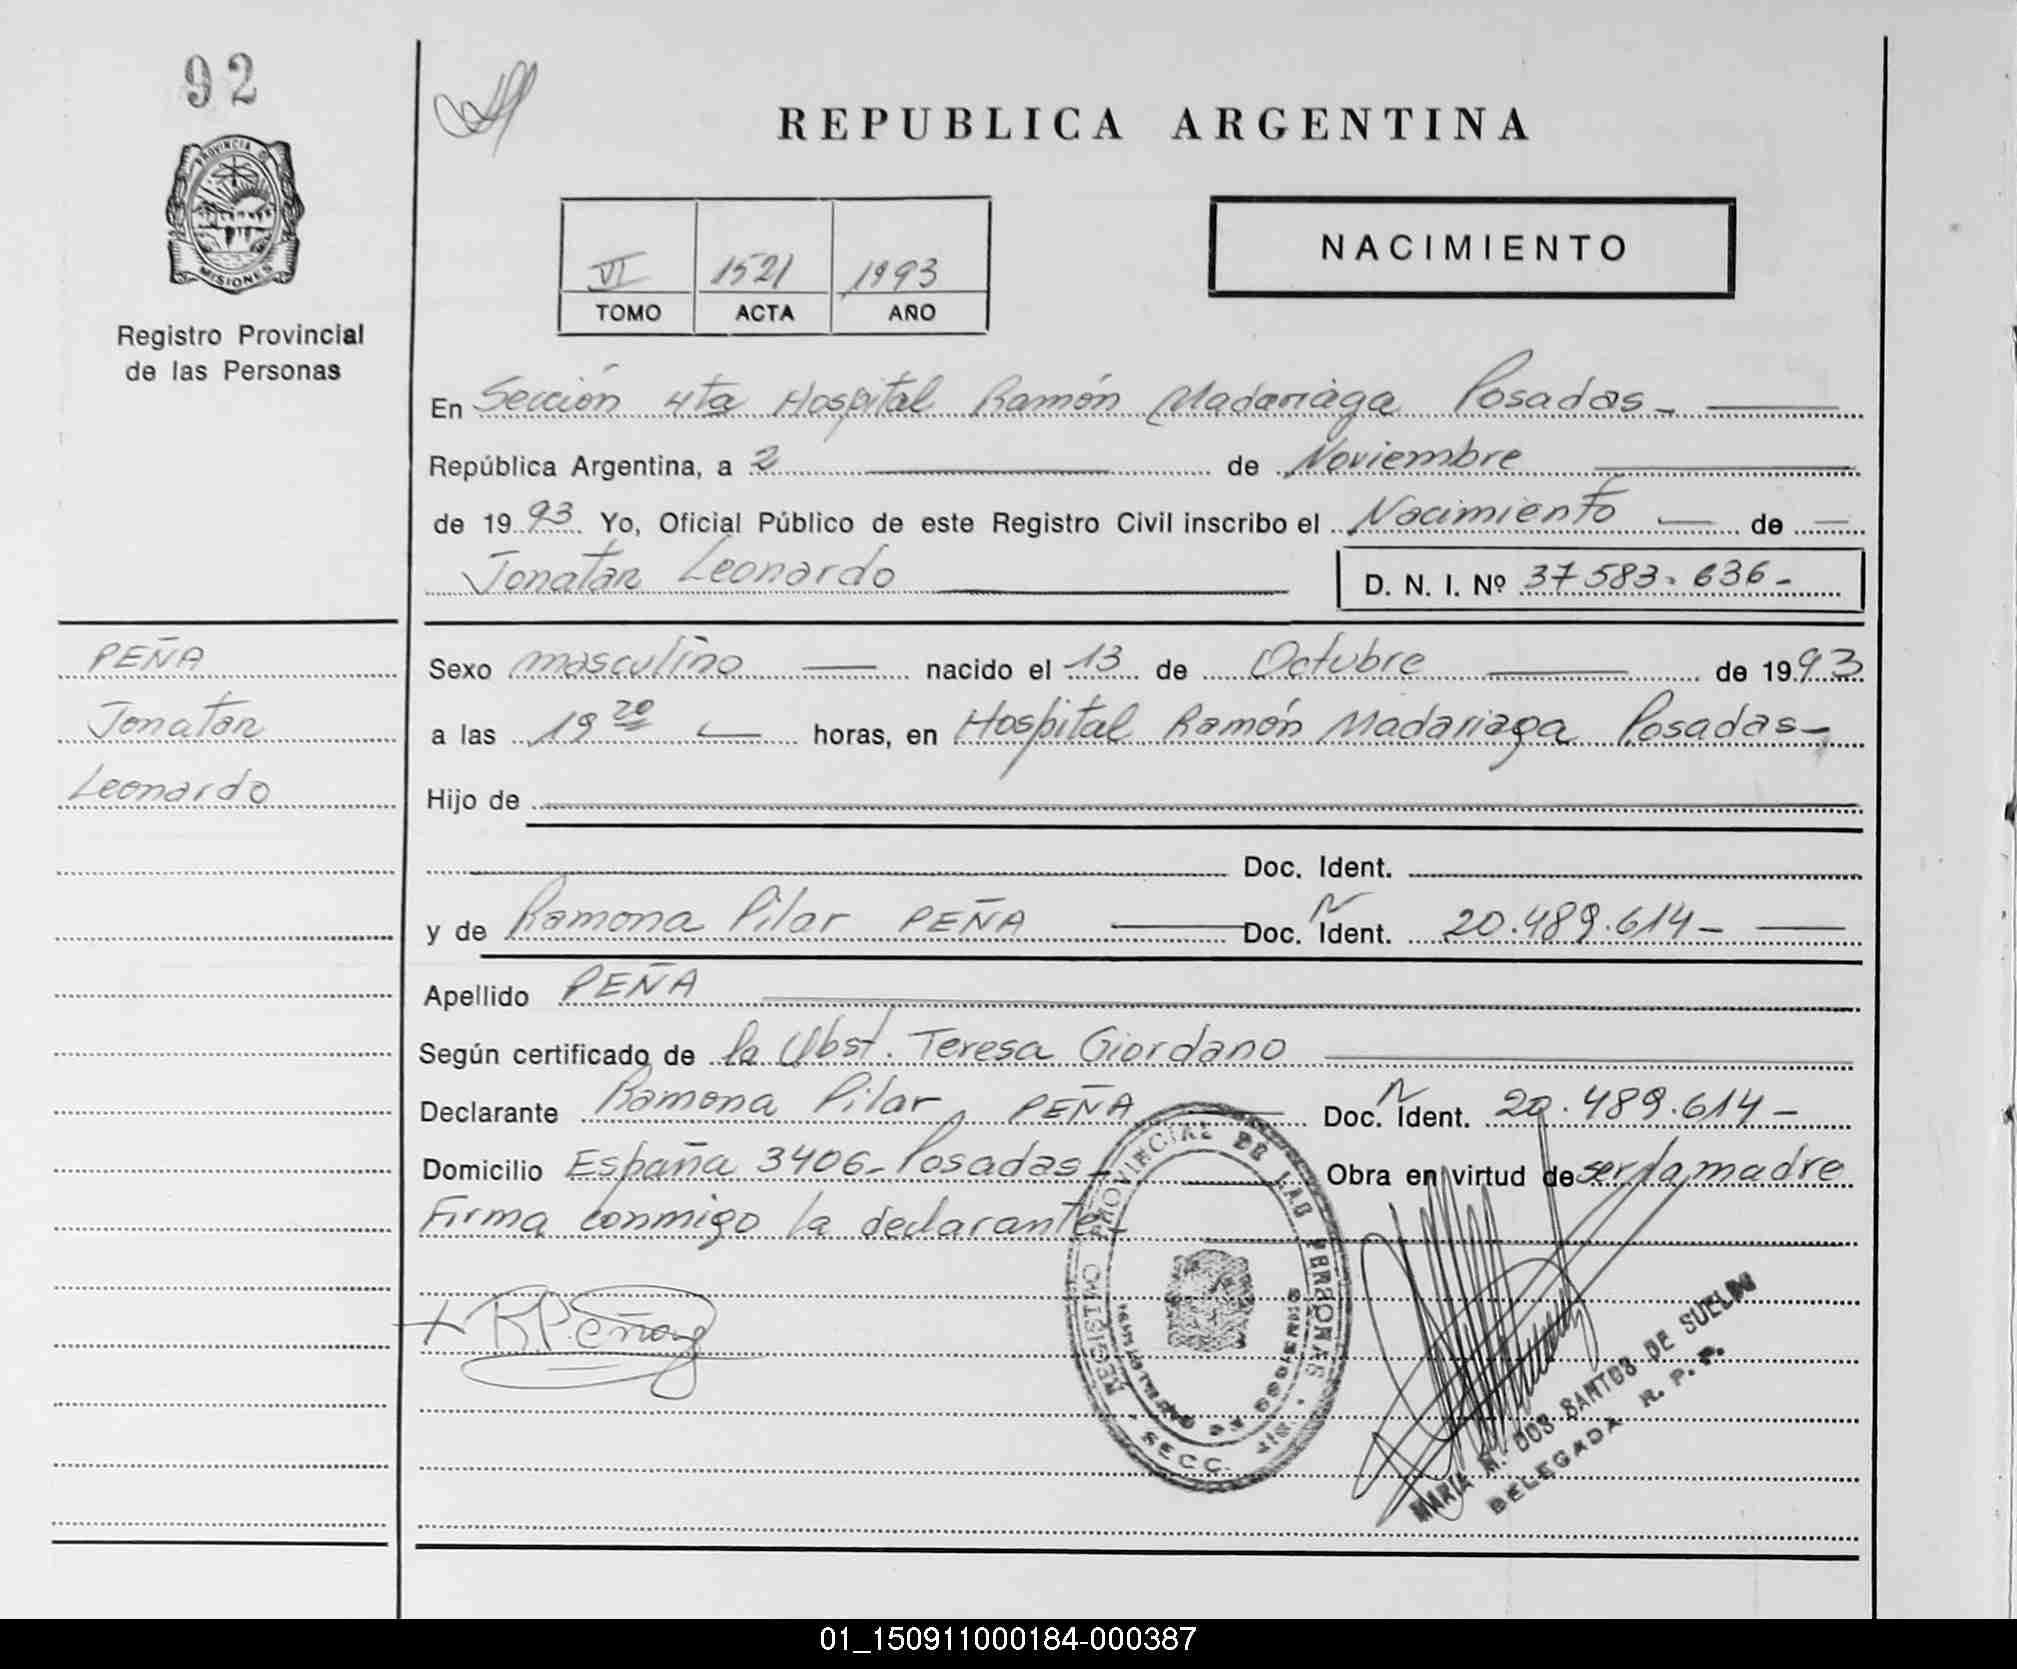 92
PROVINCIA DE
MISIONES
Registro Provincial
de las Personas
REPUBLICA ARGENTINA
VI 1521 1993
TOMO ACTA AÑO
NACIMIENTO
En Sección 4ta Hospital Ramón Madariaga Posadas -
República Argentina, a 2 de Noviembre
de 1993 Yo, Oficial Público de este Registro Civil inscribo el Nacimiento de
Jonatan Leonardo D. N. I. Nº 37583.636-
PEÑA
Jonatan
Leonardo
Sexo masculino nacido el 13 de Octubre de 1993
a las 19 20 horas, en Hospital Ramón Madariaga Posadas-
Hijo de
Doc. Ident.
y de Ramona Pilar PEÑA Doc. N Ident. 20.489.614-
Apellido PEÑA
Según certificado de la Obst. Teresa Giordano
Declarante Ramona Pilar PEÑA Doc. N Ident. 20.489.614-
Domicilio España 3406- Posadas- Obra en virtud de ser la madre
Firma conmigo la declarante-
REGISTRO PROVINCIAL DE LAS PERSONAS
SECC.
MARIA DOS SANTOS DE SUELIN
DELEGADA R. P. P.
01_150911000184-000387